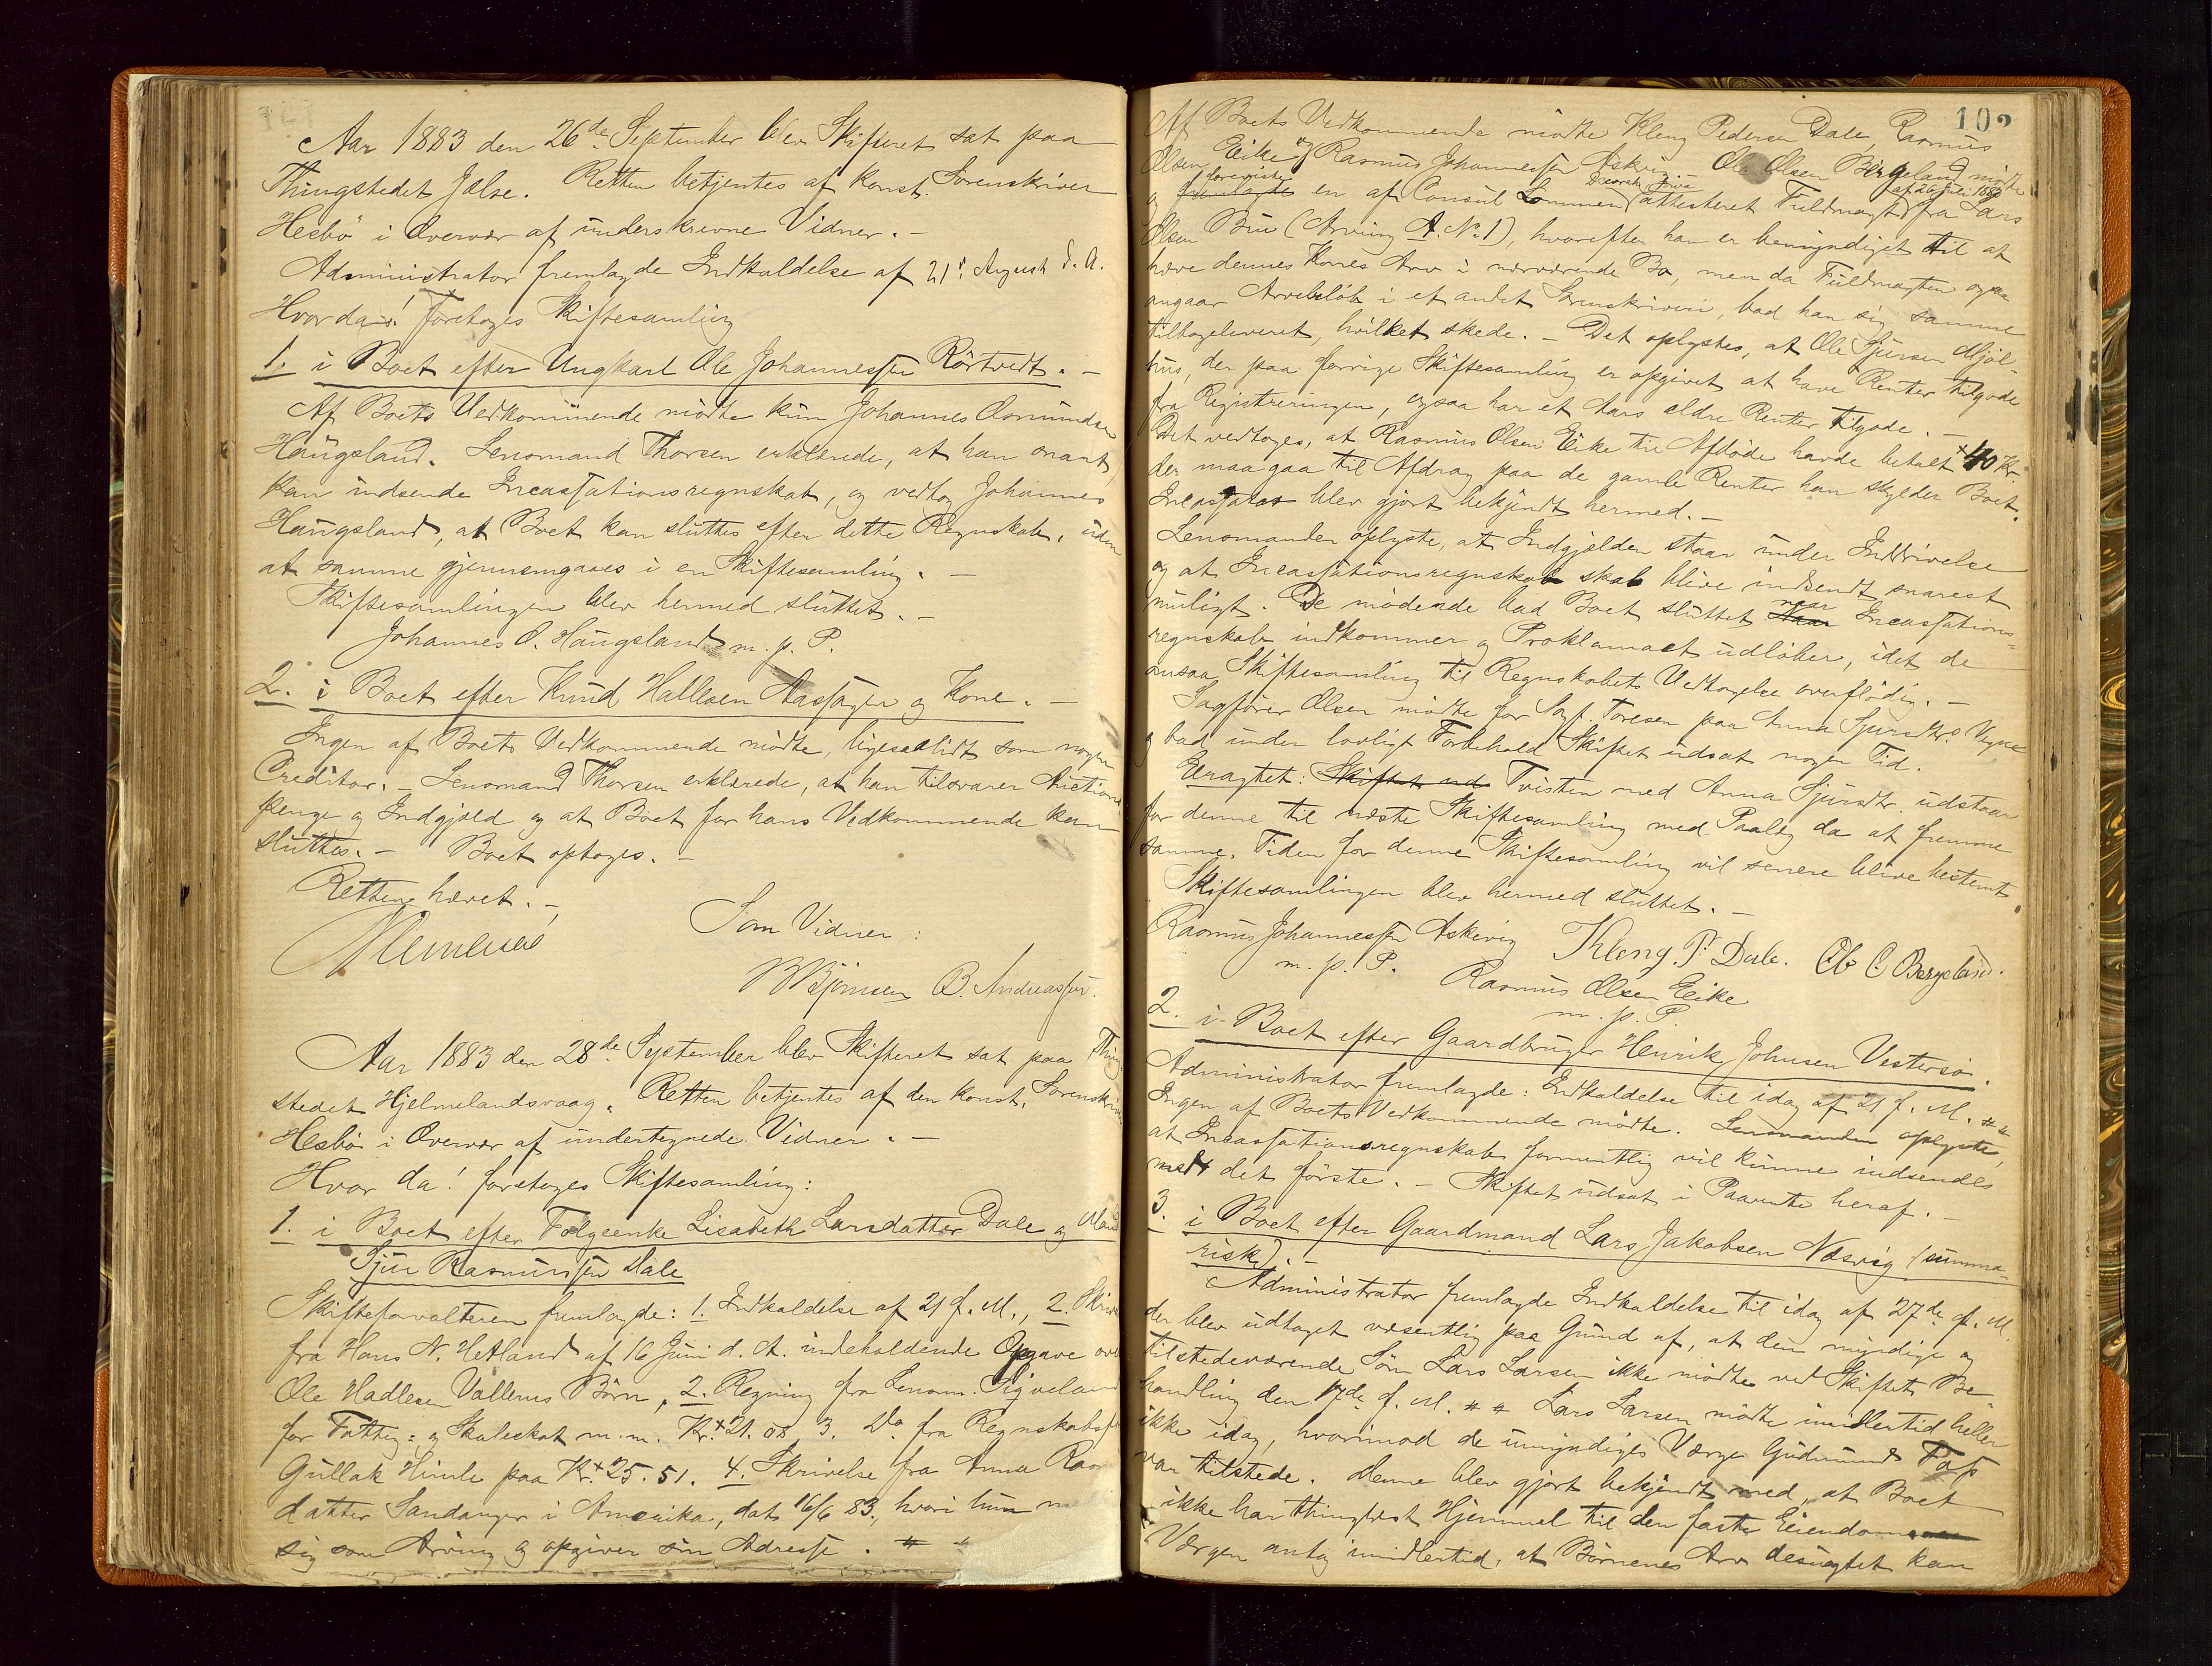 Aar 1883 den 26de September blev Skifteret sat paa
Thingstedet Jælse. Retten betjentes af konst. Sorenskriver
Hesbö i Overvær af underskrevne Vidner. –
Administrator fremlagde Indkaldelse af 21' August d. A.
Hvor da! Foretoges Skiftesamling
1. i Boet efter Ungkarl Ole Johannessen Rörtvedt. –
Af Boets Vedkommende mödte kun Johannes Osmundsen
Haugsland. Lensmand Thorsen erklærede, at han snart
kan indsende Incassationsregnskab, og vedtog Johannes
Haugsland, at Boet kan sluttes efter dette Regnskab, uden
at samme gjennemgaaes i en Skiftesamling. –
Skiftesamlingen blev hermed sluttet. –
Johannes O. Haugsland m. p. P.
2. i Boet efter Knud Halleen og Kone. –
Ingen af Boets Vedkommende mödte, ligesaalidt som nogen
Creditor. – Lensmand Thorsen erklærede, at han tilsvarer Auctions
penge og Indgjæld og at Boet for hans Vedkommende kan
sluttes. – Boet optoges. –
Retten hævet. –
Som Vidner:
B. Andreassen.
Aar 1883 den 28de September blev Skifteret sat paa Thing
stedet Hjelmelandsvaag. Retten betjentes af den konst. Sorenskriver
Hesbö i Overvær af undertegnede Vidner. –
Hvor da! foretoges Skiftesamling:
1. i Boet efter Fölgeenke Lisabeth Larsdatter Dale og Mand
Sjur Rasmussen Dale
Skifteforvalteren fremlagde: 1. Indkaldelse af 21 f. M., 2. Skriv
fra Hans N. Hetland af 16 Juni d. A. indeholdende Opgave over
Ole Hadlesen Vallerus Börn, 2. Regning fra Lensm. Sigveland
for Fattig= og Skoleskat m. m. Kr. 21. 08 3. Do fra Regnskabsf
Gullak Himle paa Kr. 25. 51. 4. Skrivelse fra Anna Ras
datter Sandanger i Amerika, dat. 16/6 83, hvori hun m
sig som Arving og opgiver sin Adresse.
102
Af Boets Vedkommende mödte Kleng Pedersen Dale, Rasmus
Olsen Eike og Rasmus Johannessen Askvig – Ole Olsen Bergeland mödte
foreviste Decorah Iowa af 26 Juli 1883
og fremlagde en af Consul attesteret Fuldmagt fra Lars
Olsen Bue (Arving A. No 1), hvorefter han er bemyndiget til at
hæve dennes Kones Arv i nærværende Bo, men da Fuldmagten ogsaa
angaar Arvebeløb i et andet Sorenskriveri, bad han sig samme
tilbageleveret, hvilket skede. – Det oplystes, at Ole Sjursen Mjöl-
hus, der paa forrige Skiftesamling er opgivet at have Renter tilgode
fra Registreringen, ogsaa har et Aars ældre Renter tilgode. –
Det vedtoges, at Rasmus Olsen Eike til Afdöde havde betalt 40 Kr.
der maa gaa til Afdrag paa de gamle Renter han skylder Boet.
Incassator blev gjort bekjendt hermed. –
Lensmanden oplyste, at Indgjælden staar under Inddrivelse
og at Incassationsregnskab skal blive indsendt snarest
muligt. De mödende bad Boet sluttet naar Incassations=
regnskab indkommer og Proklamaet udlöber, idet de
ansaa Skiftesamling til Regnskabets Vedtagelse overflödig. –
Sagförer Olsen mödte for Sagf. Toresen paa Anna Sjursdtrs Vegne
og bad under lovligt Forbehold Skiftet udsat nogen Tid.
Eragtet: Skiftet ud Tvisten med Anna Sjursdtr. udstaar
for denne til næste Skiftesamling med Paalæg da at fremme
samme. Tiden for denne Skiftesamling vil senere blive bestemt.
Skiftesamlingen blev hermed sluttet. –
Rasmus Johannessen Askvig Kleng P. Dale. Ole O. Bergeland.
m. p. P. Rasmus Olsen Eike
m. p. P.
2. i Boet efter Gaardbruger Henrik Johnsen Vestersö.
Administrator fremlagde: Indkaldelse til idag af 21 f. M.
Ingen af Boets Vedkommende mödte. Lensmanden oplyste,
at Incassationsregnskab formentlig vil kunne indsendes
med det förste. – Skiftet udsat i Paavente heraf. –
3. i Boet efter Gaardmand Lars Jakobsen Næsvig (summa-
risk). –
Administrator fremlagde Indkaldelse til idag af 27de f. M.
der blev udtaget væsentlig paa Grund af, at den myndige og
tilstedeværende Sön Lars Larsen ikke mödte ved Skiftets Be
handling den 17de f. M. Lars Larsen mödte imidlertid heller
ikke idag, hvorimod de umyndiges Værge Gudmund
var tilstede. Denne blev gjort bekjendt med, at Boet
ikke har thinglæst Hjemmel til den faste Eiendom
Værgen antog imidlertid, at Börnenes Arv desuagtet kan